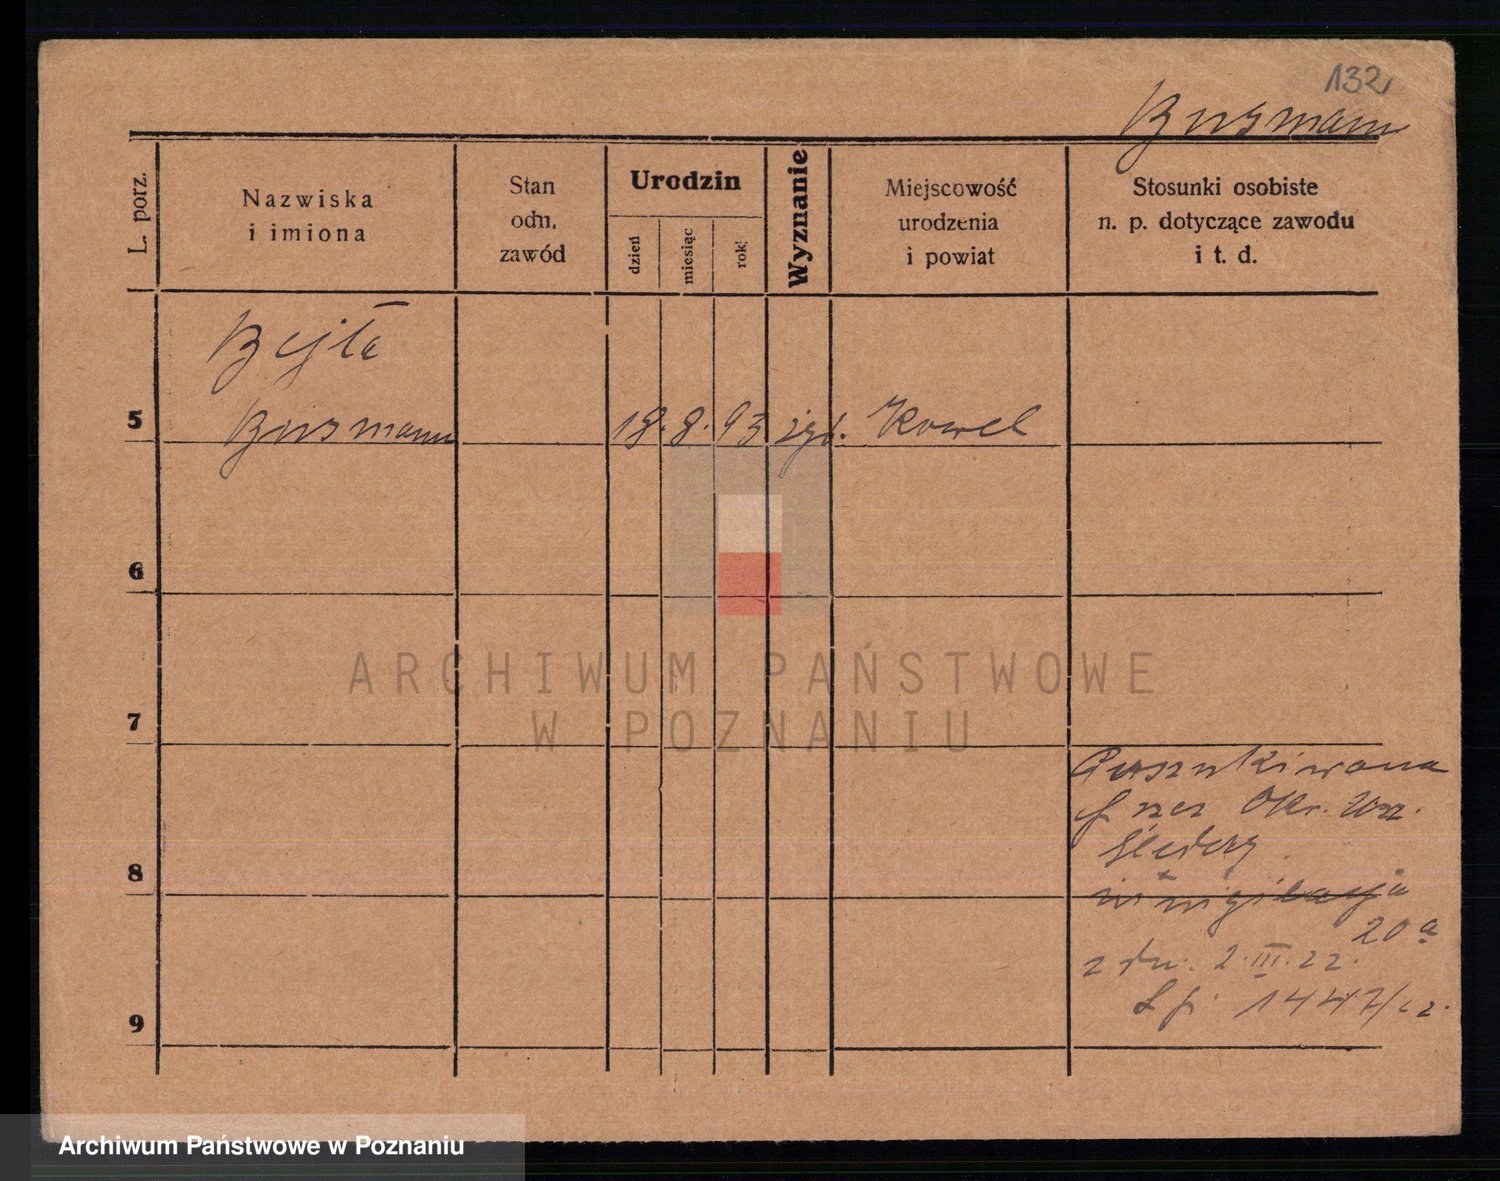 132
Busmann
L. porz.
Nazwiska
i imiona
Stan
odn.
zawód
Urodzin
dzień
miesiąc
rok
Wyznanie
Miejscowość
urodzenia
i powiat
Stosunki osobiste
n. p. dotyczące zawodu
i t. d.
Bejła
5 Busmann 18. 8. 93 Kowel
6
7
8
9
Poszukiwana
przez Okr. Urz.
Śledczy
20a
z dn. 2.III.22.
ARCHIWUM PAŃSTWOWE
W POZNANIU
Archiwum Państwowe w Poznaniu